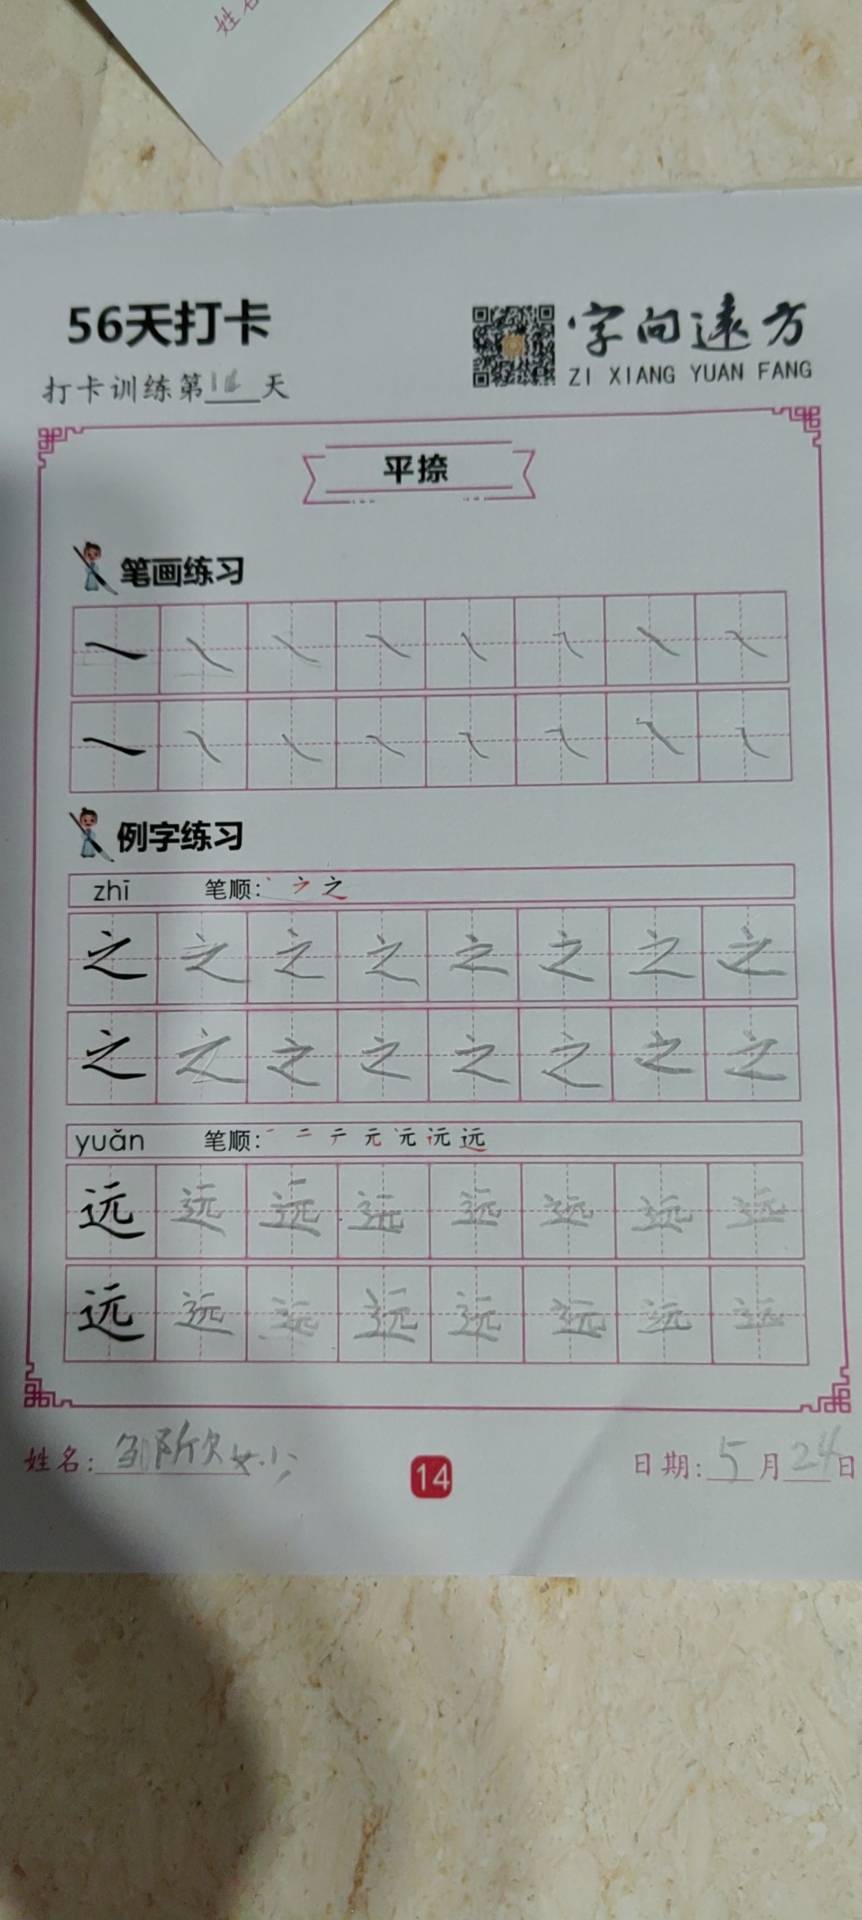 姓名
56天打卡
字向远方
ZI XIANG YUAN FANG
打卡训练第天
平捺
笔画练习
例字练习
zhī 笔顺:丶 之
之 之 之 之 之 之 之 之
之 之 之 之 之 之 之 之
yuǎn 笔顺:一 二 テ 元 远
远 远 远 远 远 远 远 远
远 远 远 远 远 远 远 远
姓名:
14
日期:5月24日